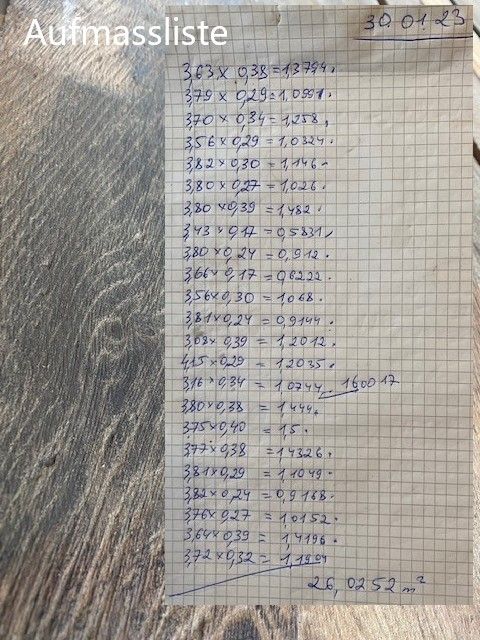 Aufmassliste
30.01.23
3,63 x 0,38 = 1,3794.
3,79 x 0,29 = 1,0991.
3,70 x 0,34 = 1,258,
3,56 x 0,29 = 1,0324.
3,82 x 0,30 = 1,146.
3,80 x 0,27 = 1,026.
3,80 x 0,39 = 1,482.
3,43 x 0,17 = 0,5831,
3,80 x 0,24 = 0,912.
3,66 x 0,17 = 0,6222.
3,56 x 0,30 = 1,068.
3,81 x 0,24 = 0,9144.
3,08 x 0,39 = 1,2012.
4,15 x 0,29 = 1,2035.
3,16 x 0,34 = 1,0744. 16,0017
3,80 x 0,38 = 1,444,
3,75 x 0,40 = 1,5.
3,77 x 0,38 = 1,4326.
3,81 x 0,29 = 1,1049.
3,82 x 0,24 = 0,9168.
3,76 x 0,27 = 1,0152.
3,64 x 0,39 = 1,4196.
3,72 x 0,32 = 1,1904
26,0252 m²